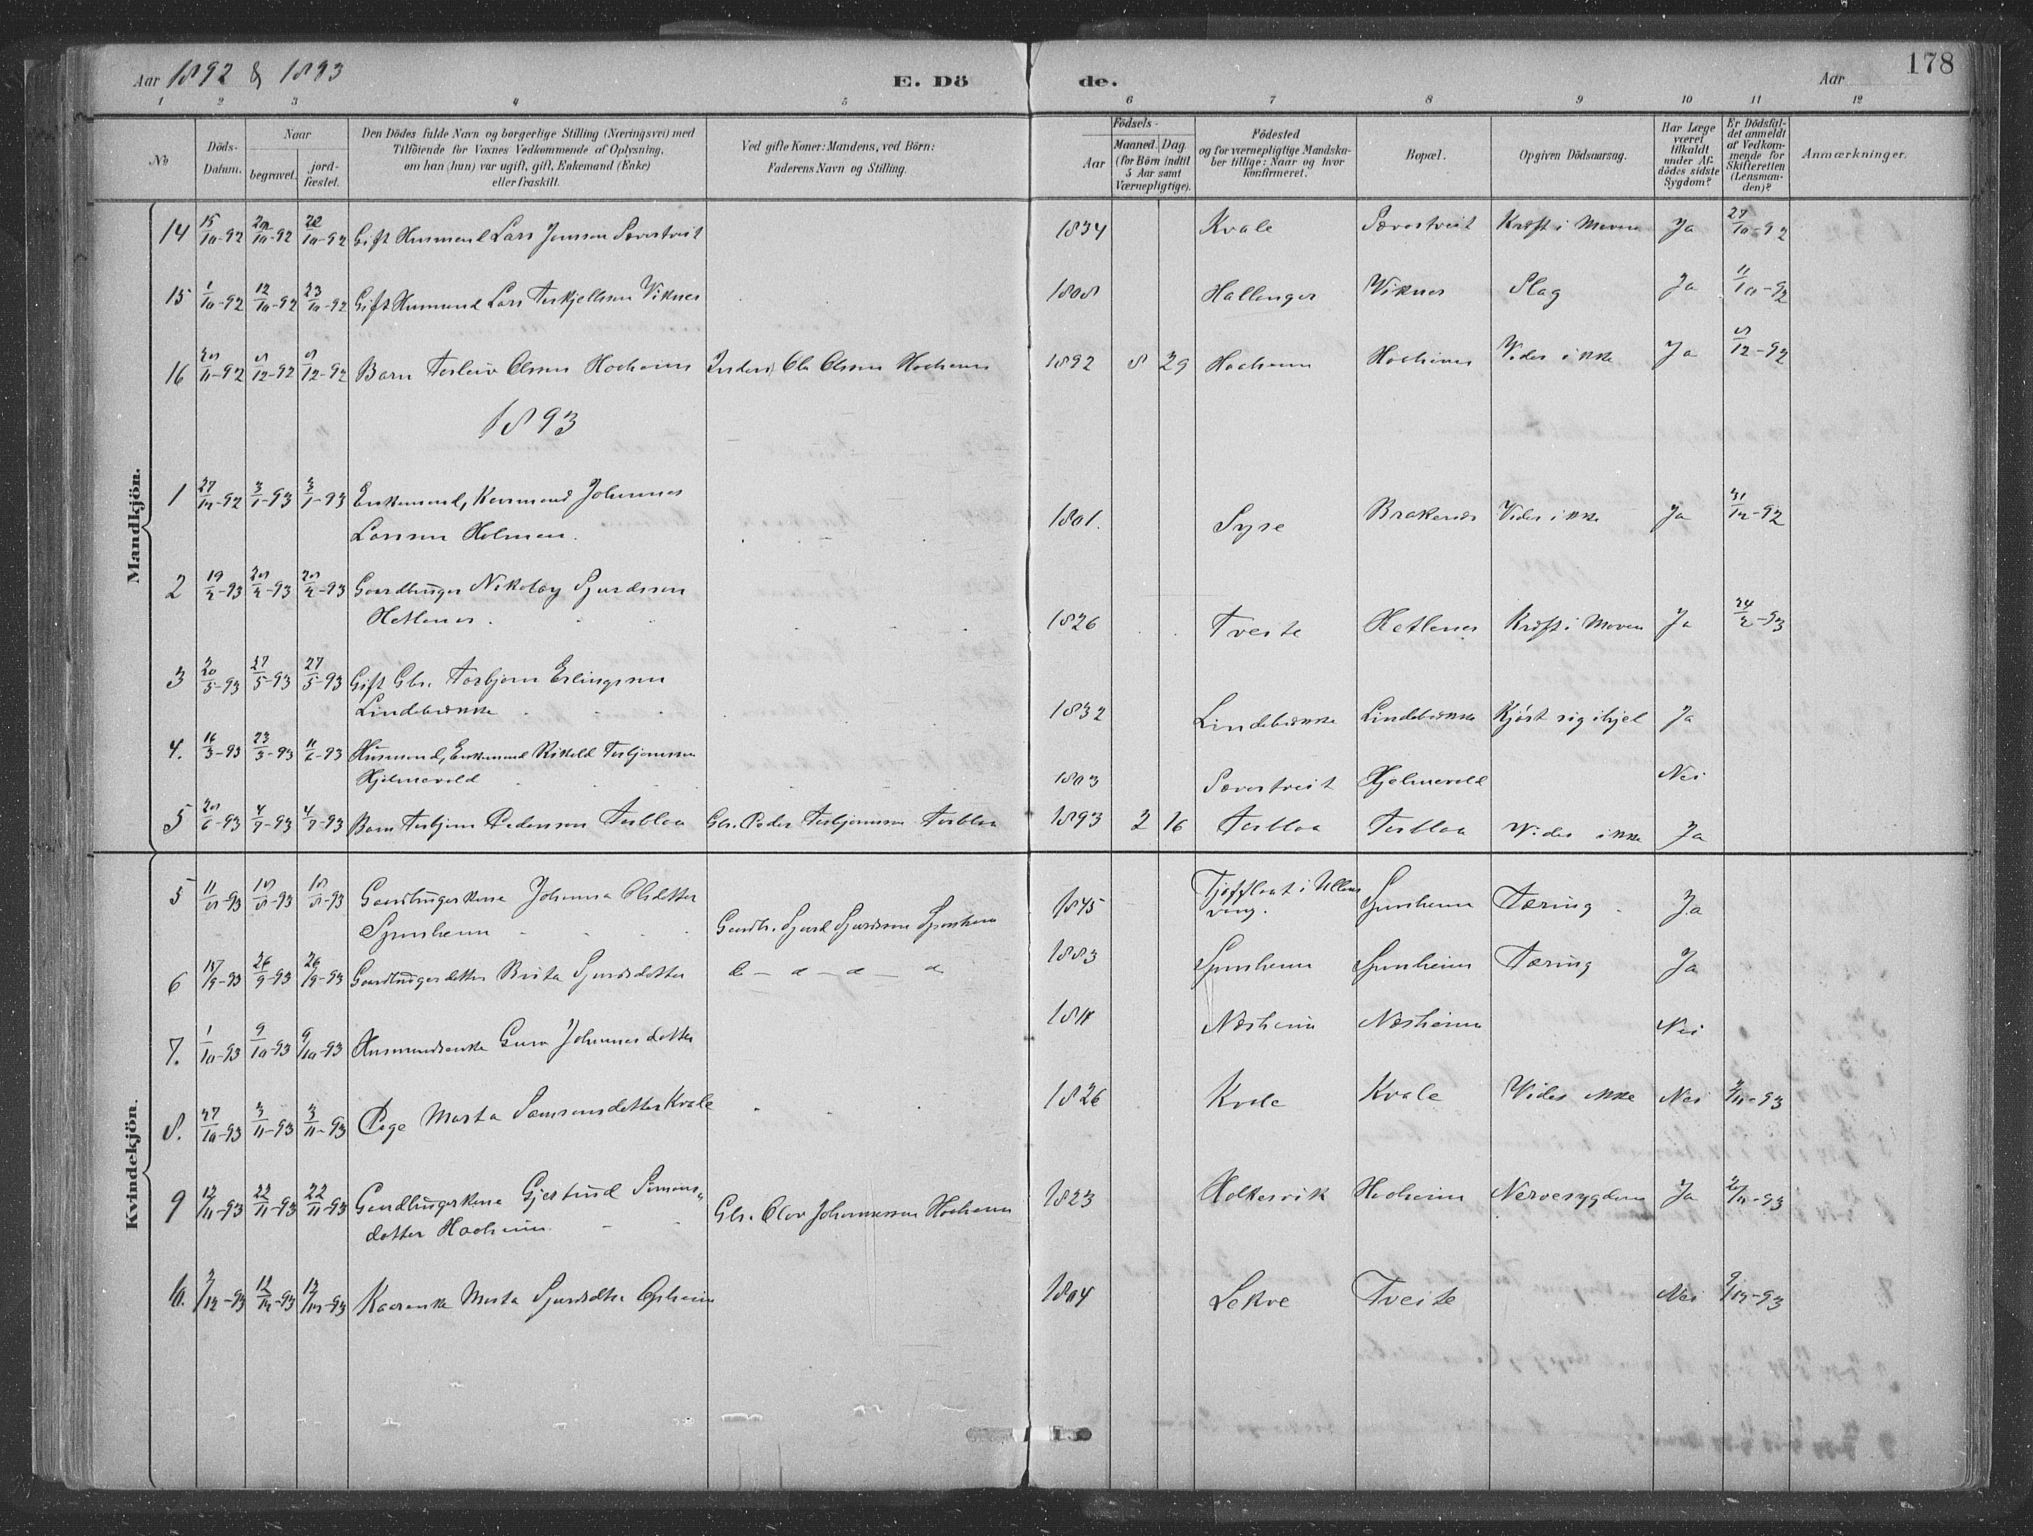 Aar 1892 & 1893 E. Dö de. Aar 178
1 2 3 4 5 6 7 8 9 10 11 12
No
Döds-Datum.
Naar
begravet.
jord-fæstet.
Den Dödes fulde Navn og borgerlige Stilling (Næringsvei) med
Tilföiende for Voxnes Vedkommende af Oplysning,
om han (hun) var ugift, gift, Enkemand (Enke)
eller fraskilt.
Ved gifte Koner: Mandens, ved Börn:
Faderens Navn og Stilling.
Födsels-
Aar
Maaned. Dag.
(for Börn indtil
5 Aar samt
Værnepligtige).
Födested
og for værnepligtige Mandska-
ber tillige: Naar og hvor
konfirmeret.
Bopæl.
Opgiven Dödsaarsag.
Har Læge
været
tilkaldt
under Af-
dödes sidste
Sygdom?
Er Dödsfal-
det anmeldt
af Vedkom-
mende for
Skifteretten
(Lensman-
den)?
Anmærkninger.
Mandkjön.
14 15/10-92 22/10-92 Gift Husmand Lars Jonssen Sævartveit 1834 Kvale Sævartveit Kræft i Maven Ja 27/10-92
15 1/10-92 12/10-92 23/10-92 Gift Husmand Lars Torkjellsen Viknes 1808 Hallanger Viknes Slag Ja 11/10-92
16 Barn Torleiv Olsen Hodheim Olsen Hodheim 1892 8 29 Hodheim Hodheim Vides ikke Ja 8/12-92
1893
1 27/12-92 3/1-93 3/1-93 Enkemand, Kaarmand Johannes
Larssen Holmen. 1801. Syse Brakenes Vides ikke Ja 31/12-92
2 19/2-93 28/2-93 28/2-93 Gaardbruger Nikolay Sjurdssen
Hetlenes. 1826 Tveite Hetlenes Kræft i Maven Ja 24/2-93
3 20/5-93 27/5-93 27/5-93 Gift Gbr. Torbjørn Erlingssen
Lindebrække 1832 Lindebrække Lindebrække Kjørt sig ihjel Ja
4. 16/3-93 23/3-93 11/6-93 Husmand, Enkemand Torbjørnssen
Hjelmevold 1803 Sævartveit Hjelmevold Nei
5 28/6-93 4/9-93 4/9-93 Barn Torbjørn Pedersen Torbloa Gbr. Peder Torbjørnssen Torbloa 1893 2 16 Torbloa Torbloa Vides ikke Ja
Kvindekjön.
5 11/8-93 18/8-93 18/8-93 Gaardbrugerkone Johanna Olsdatter
Spanheim Gaardbr. Sjurd Sjurdssen Spanheim 1845 Tjoflaat i Ullens
vang. Spanheim Tæring Ja
6 26/9-93 26/9-93 Gaardbrugerdatter Brita Sjursdatter 1883 Spanheim Spanheim Tæring Ja
7. 1/10-93 9/10-93 9/10-93 Husmandsenke Guro Johannesdatter 1811 Næsheim Næsheim Nei
8. 27/10-93 3/11-93 3/11-93 Pige Marta Samsonsdatter Kvale 1826 Kvale Kvale Vides ikke Nei
9 12/11-93 22/11-93 22/11-93 Gaardbrugerkone Gjertrud Simons-
datter Hodheim Gbr. Olav Johannessen Hodheim 1823 Holkesvik Hodheim Nervesygdom Ja
10. 3/12-93 12/12-93 12/12-93 Kaarenke Marta Sjursdtr Opheim 1804 Lekve Tveite Nei 9/12-93